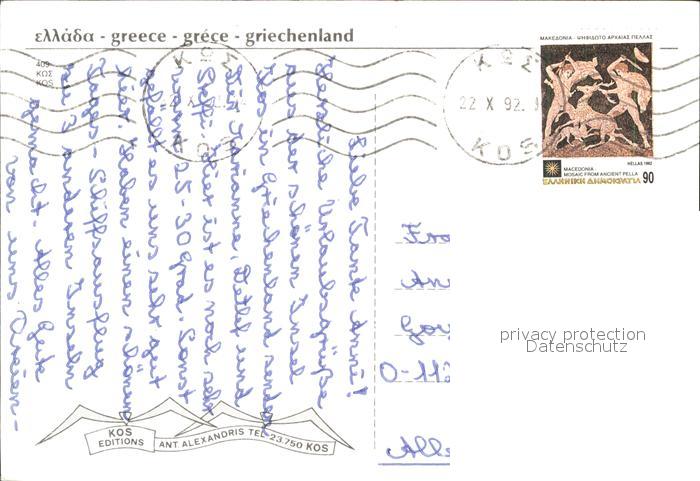 ελλάδα - greece - grèce - griechenland
409
ΚΩΣ
KOS
ΚΩΣ
22 X 92
ΚΩΣ
KOS
ΜΑΚΕΔΟΝΙΑ - ΨΗΦΙΔΩΤΟ ΑΡΧΑΙΑΣ ΠΕΛΛΑΣ
HELLAS 1992
MACEDONIA
MOSAIC FROM ANCIENT PELLA
ΕΛΛΗΝΙΚΗ ΔΗΜΟΚΡΑΤΙΑ 90
Liebe Tante Anni!
Herzliche Urlaubsgrüße
aus der schönen Insel
Kos in Griechenland senden
Dir Marianne, Detlef und
Steffi. Hier ist es noch sehr
warm 25 30 Grad. Sonst
gefällt es uns sehr gut
hier. Haben einen schönen
Tages-Schiffsausflug
zu 3 anderen Inseln
gemacht. Alles Gute
von uns Dreien-
O-112
Alle
privacy protection
Datenschutz
KOS
EDITIONS
ANT. ALEXANDRIS TEL. 23.750 KOS